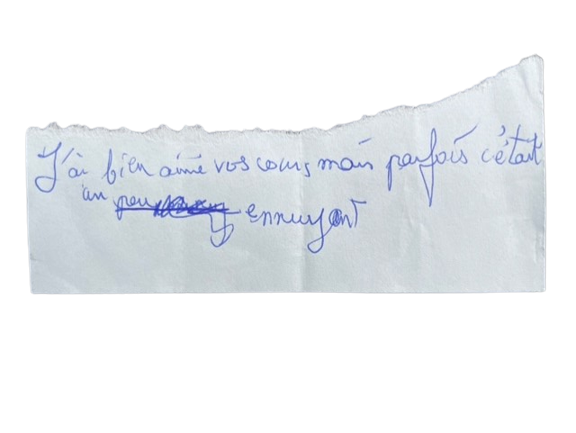 J'ai bien aimé vos cours mais parfois c'était
un peu ennuyant